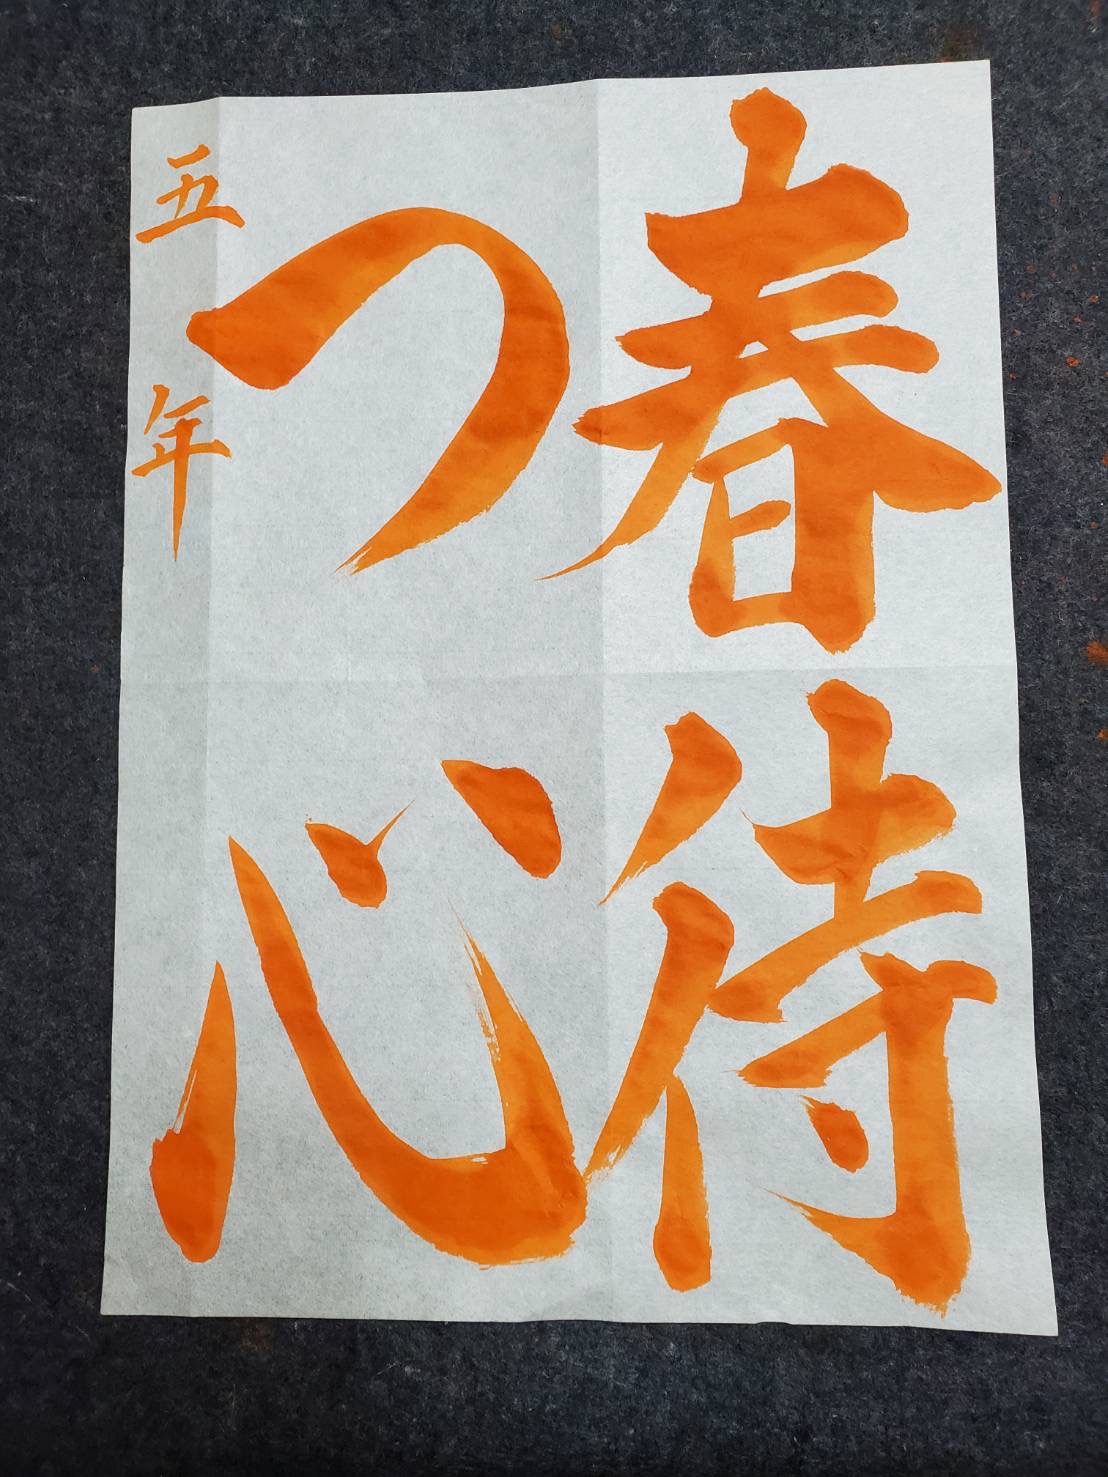 春待
つ心
五年